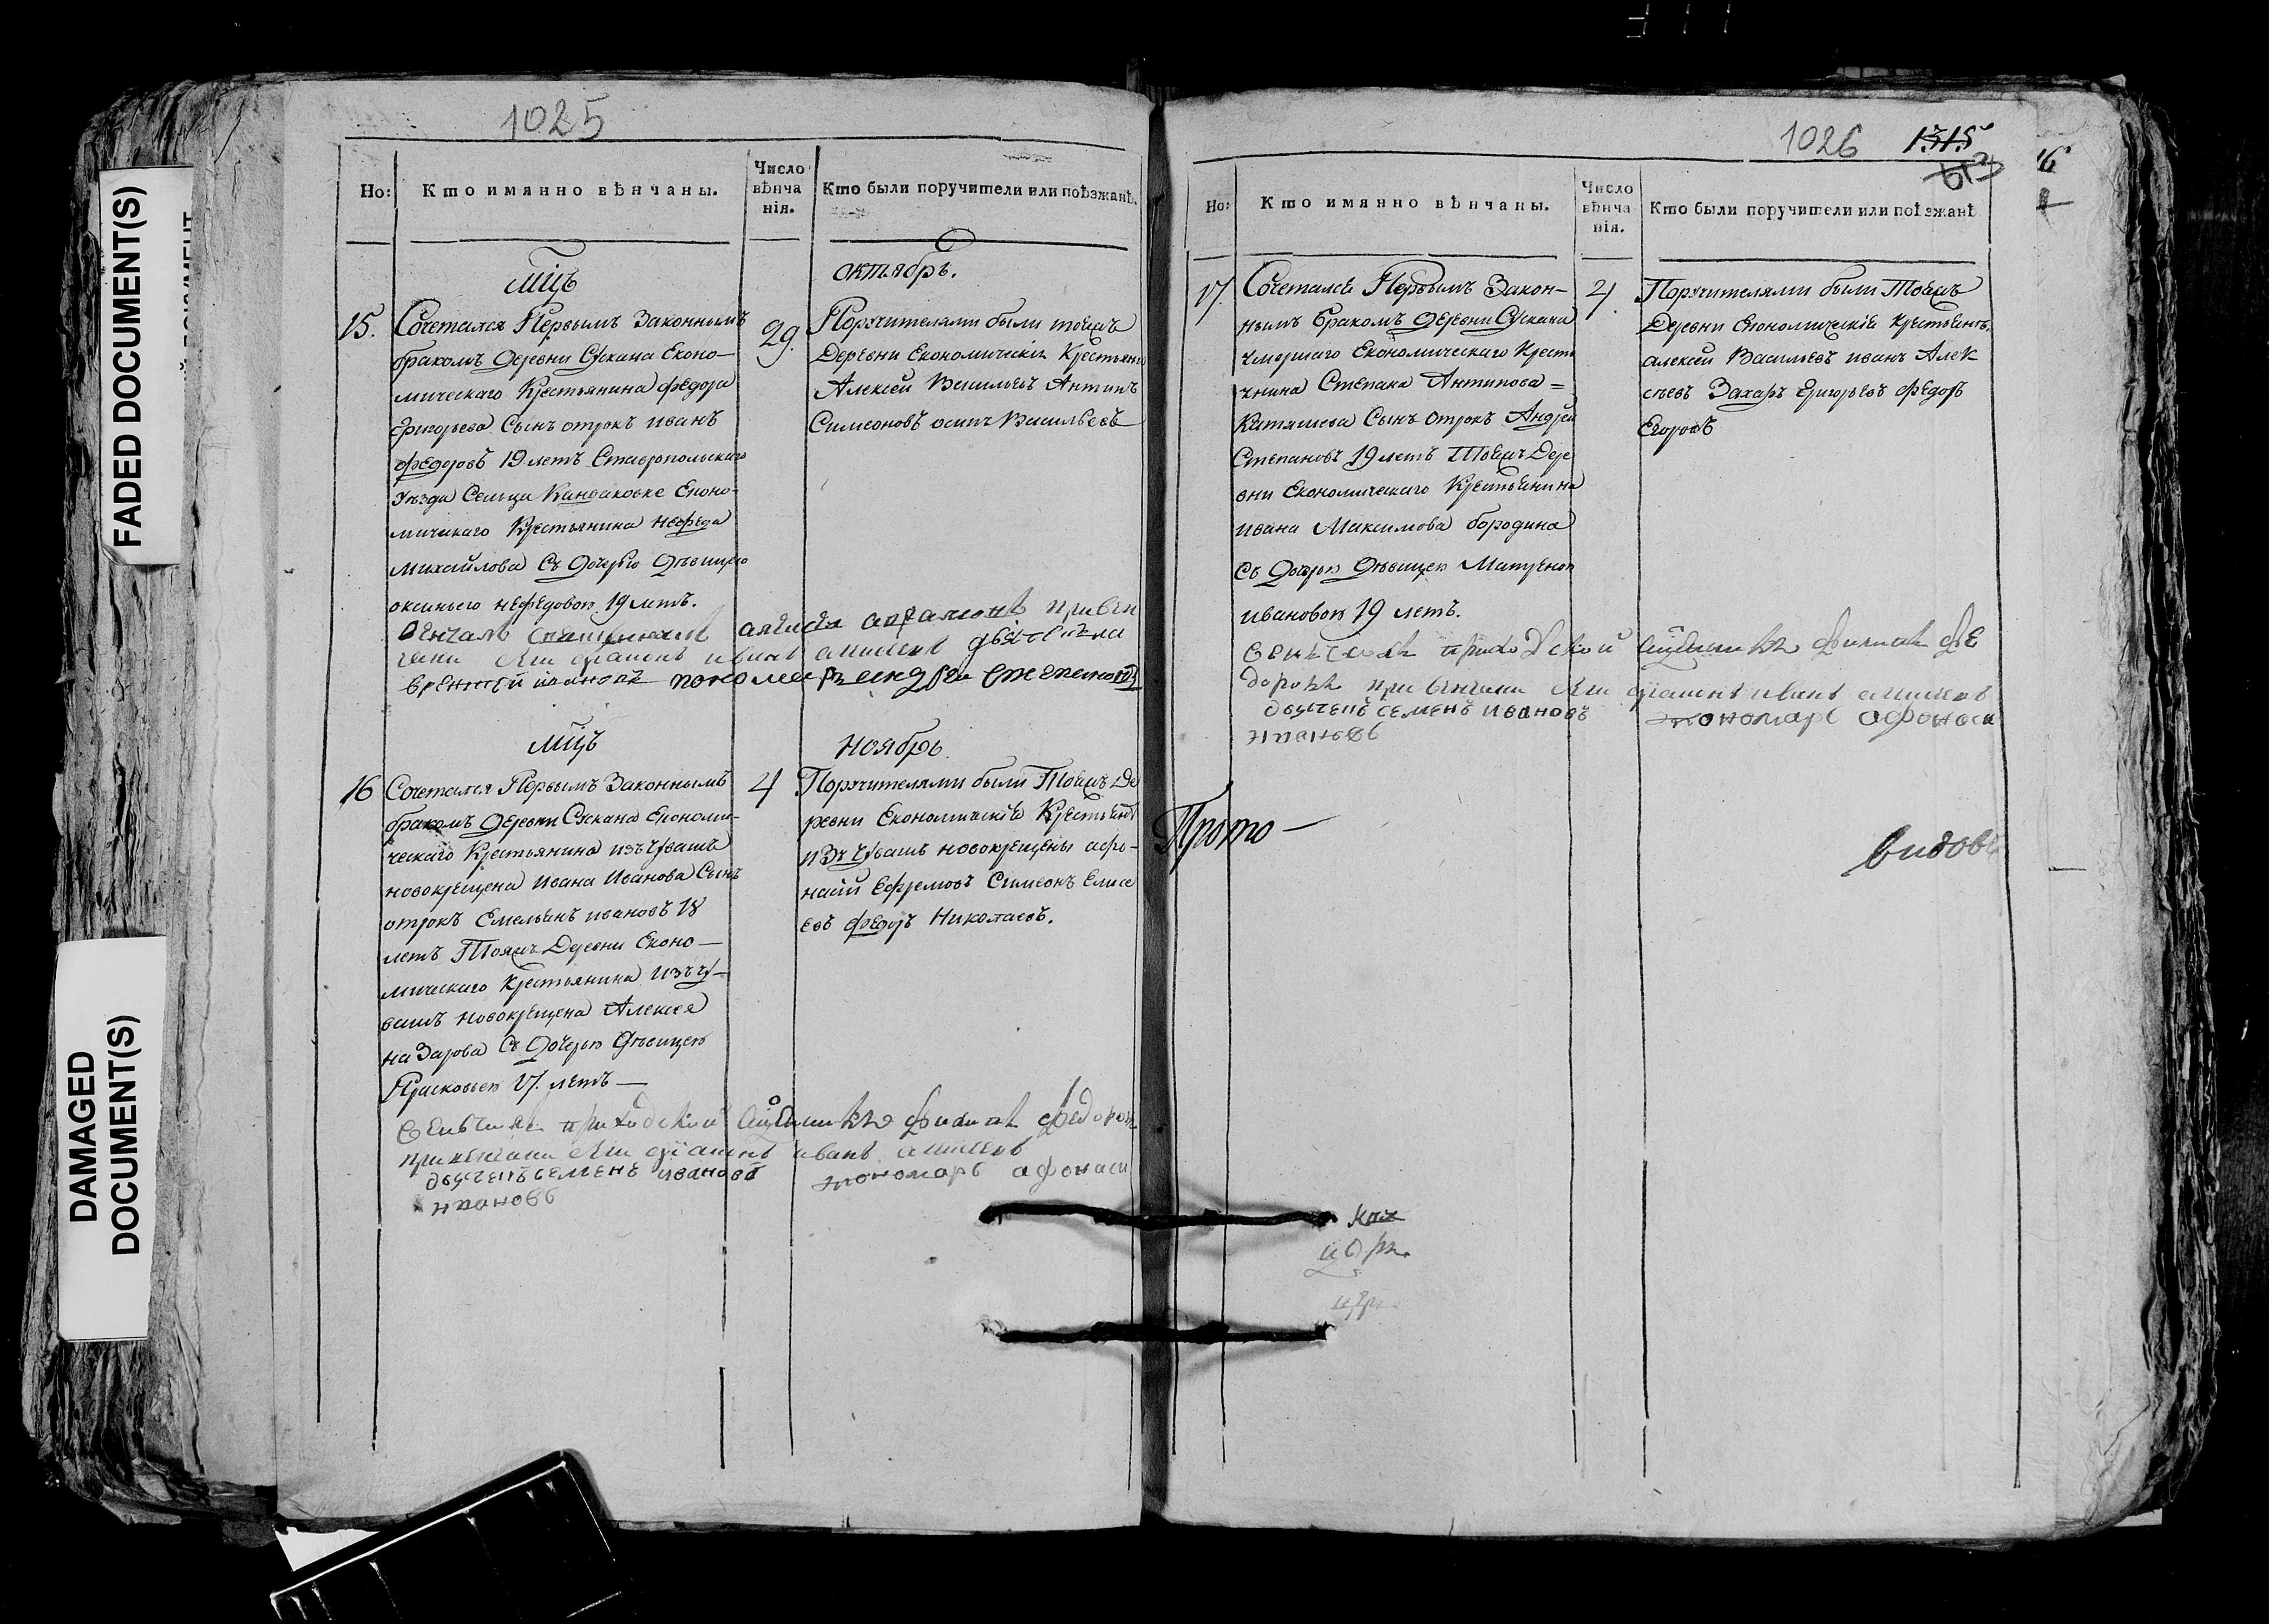 FADED DOCUMENT(S)
DAMAGED
DOCUMENT(S)
1025
Но:
Кто имянно вѣнчаны.
Число
вѣнча
нія.
Кто были поручители или поѣзжанѣ.
Мцъ
октябрь.
15.
Сочетался Первымъ Законнымъ
бракомъ деревни Сускана Еконо-
мическаго Крестьянина федора
Григорьева Сынъ отрокъ иванъ
федоровъ 19 летъ Ставропольскаго
уезда Сельца Кандаковке Еконо-
мическаго Крестьянина нефеда
михайлова Съ дочерью девицею
оксиньею нефедовою 19 летъ.
29.
Поручителями были тоежъ
Деревни Економическия Крестьяне
Алексей Васильевъ Антипъ
Симеоновъ осипъ Васильевъ
пономарь андреи степановъ
Мцъ
ноябрь
16
Сочетался Первымъ Законнымъ
бракомъ деревни Сускана Економи-
ческаго Крестьянина изъ чувашъ
новокрещена ивана иванова Сынъ
отрокъ Емельянъ ивановъ 18
летъ Тояжъ Деревни Еконо-
мическаго Крестьянина изъ чу-
вашъ новокрещена Алексея
назарова Съ дочерью девицею
Прасковьею 17. летъ
4
Поручителями были Тоежъ Де
ревни Економическіе Крестьяне
изъ чувашъ новокрещены афо-
насіи Ефремовъ Симеонъ Елисе
евъ федоръ Николаевъ.
венчалъ приходскои федоровъ
при венчани иванъ
семенъ ивановъ пономарь афонаси
ивановъ
1026
1315
16
Но:
Кто имянно вѣнчаны.
Число
вѣнча
нія.
Кто были поручители или поѣзжанѣ
17.
Сочетался Первымъ Закон-
нымъ бракомъ деревни Сускана
умершаго Економическаго Кресть
янина Степана Антипова =
Катяшева Сынъ отрокъ Андрей
Степановъ 19 летъ Тоежъ Дере
вни Економическаго Крестьянина
ивана Максимова бородина
Съ дочерью девицею Матреною
ивановою 19 летъ.
4
Поручителями были Тоежъ
Деревни Економическіе Крестьяне,
алексей Васильевъ иванъ Алек
сеевъ Захаръ Григорьевъ федоръ
Егоровъ
венчалъ приходскои фе
доровъ при венчани иванъ
семенъ ивановъ пономарь афонаси
ивановъ
Прото
видовъ